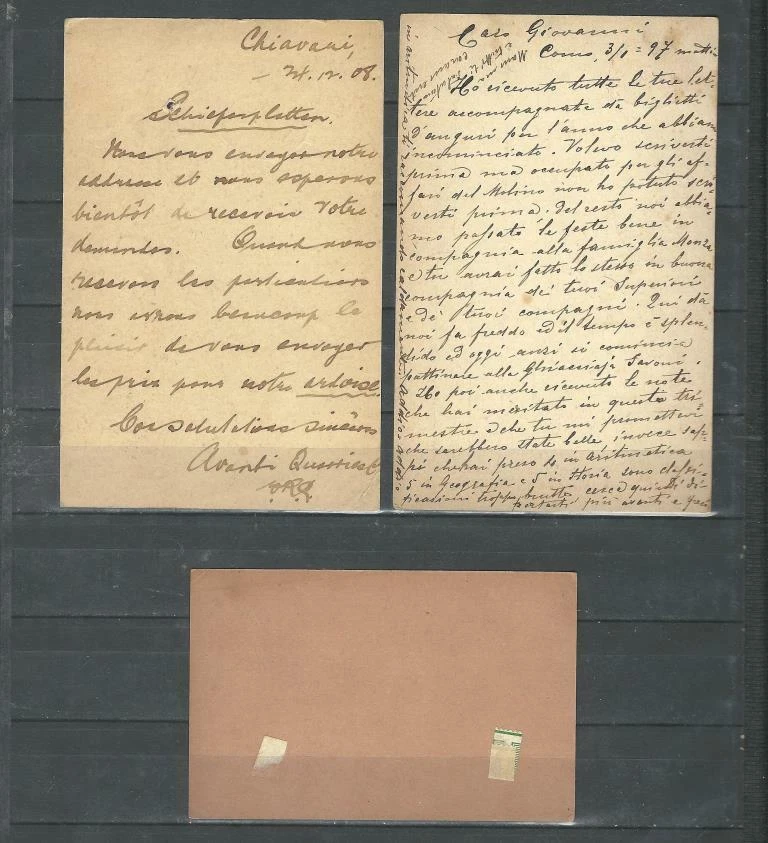 Chiavari,
24.12.08.
Schieferplatten.
Nous vous envoyons notre
addresse et nous esperons
bientôt de recevoir votre
demandes. Quand nous
recevons les particuliers
nous aurons beaucoup le
plaisir de vous envoyer
les prix pour notre ardoise.
Cos salutations sincères
Avanti Quarries
Caro Giovanni
Como, 3/1 = 97 matti
Ho ricevuto tutte le tue let-
tere accompagnate da biglietti
d'auguri per l'anno che abbiam
incominciato. Volevo scriverti
prima ma occupato per gli af-
fari del Molino non ho potuto scri-
verti prima. Del resto noi abbia-
mo passato le feste bene in
compagnia alla famiglia Monza
e tu avrai fatto lo stesso in buona
compagnia de' tuoi Superiori
e de' tuoi compagni. Qui da
noi fa freddo ed il tempo è splen-
dido ed oggi anzi si comincia
pattinare alla Ghiacciaja Savoni.
Ho poi anche ricevuto le note
che hai meritato in questo tri-
mestre e che tu mi promettevi
che sarebbero state belle, invece sap-
pi che hai preso in aritmatica
5 in Geografia e 5 in Storia sono classi-
ficazioni troppo brutte cerca quindi di
portarti più avanti e